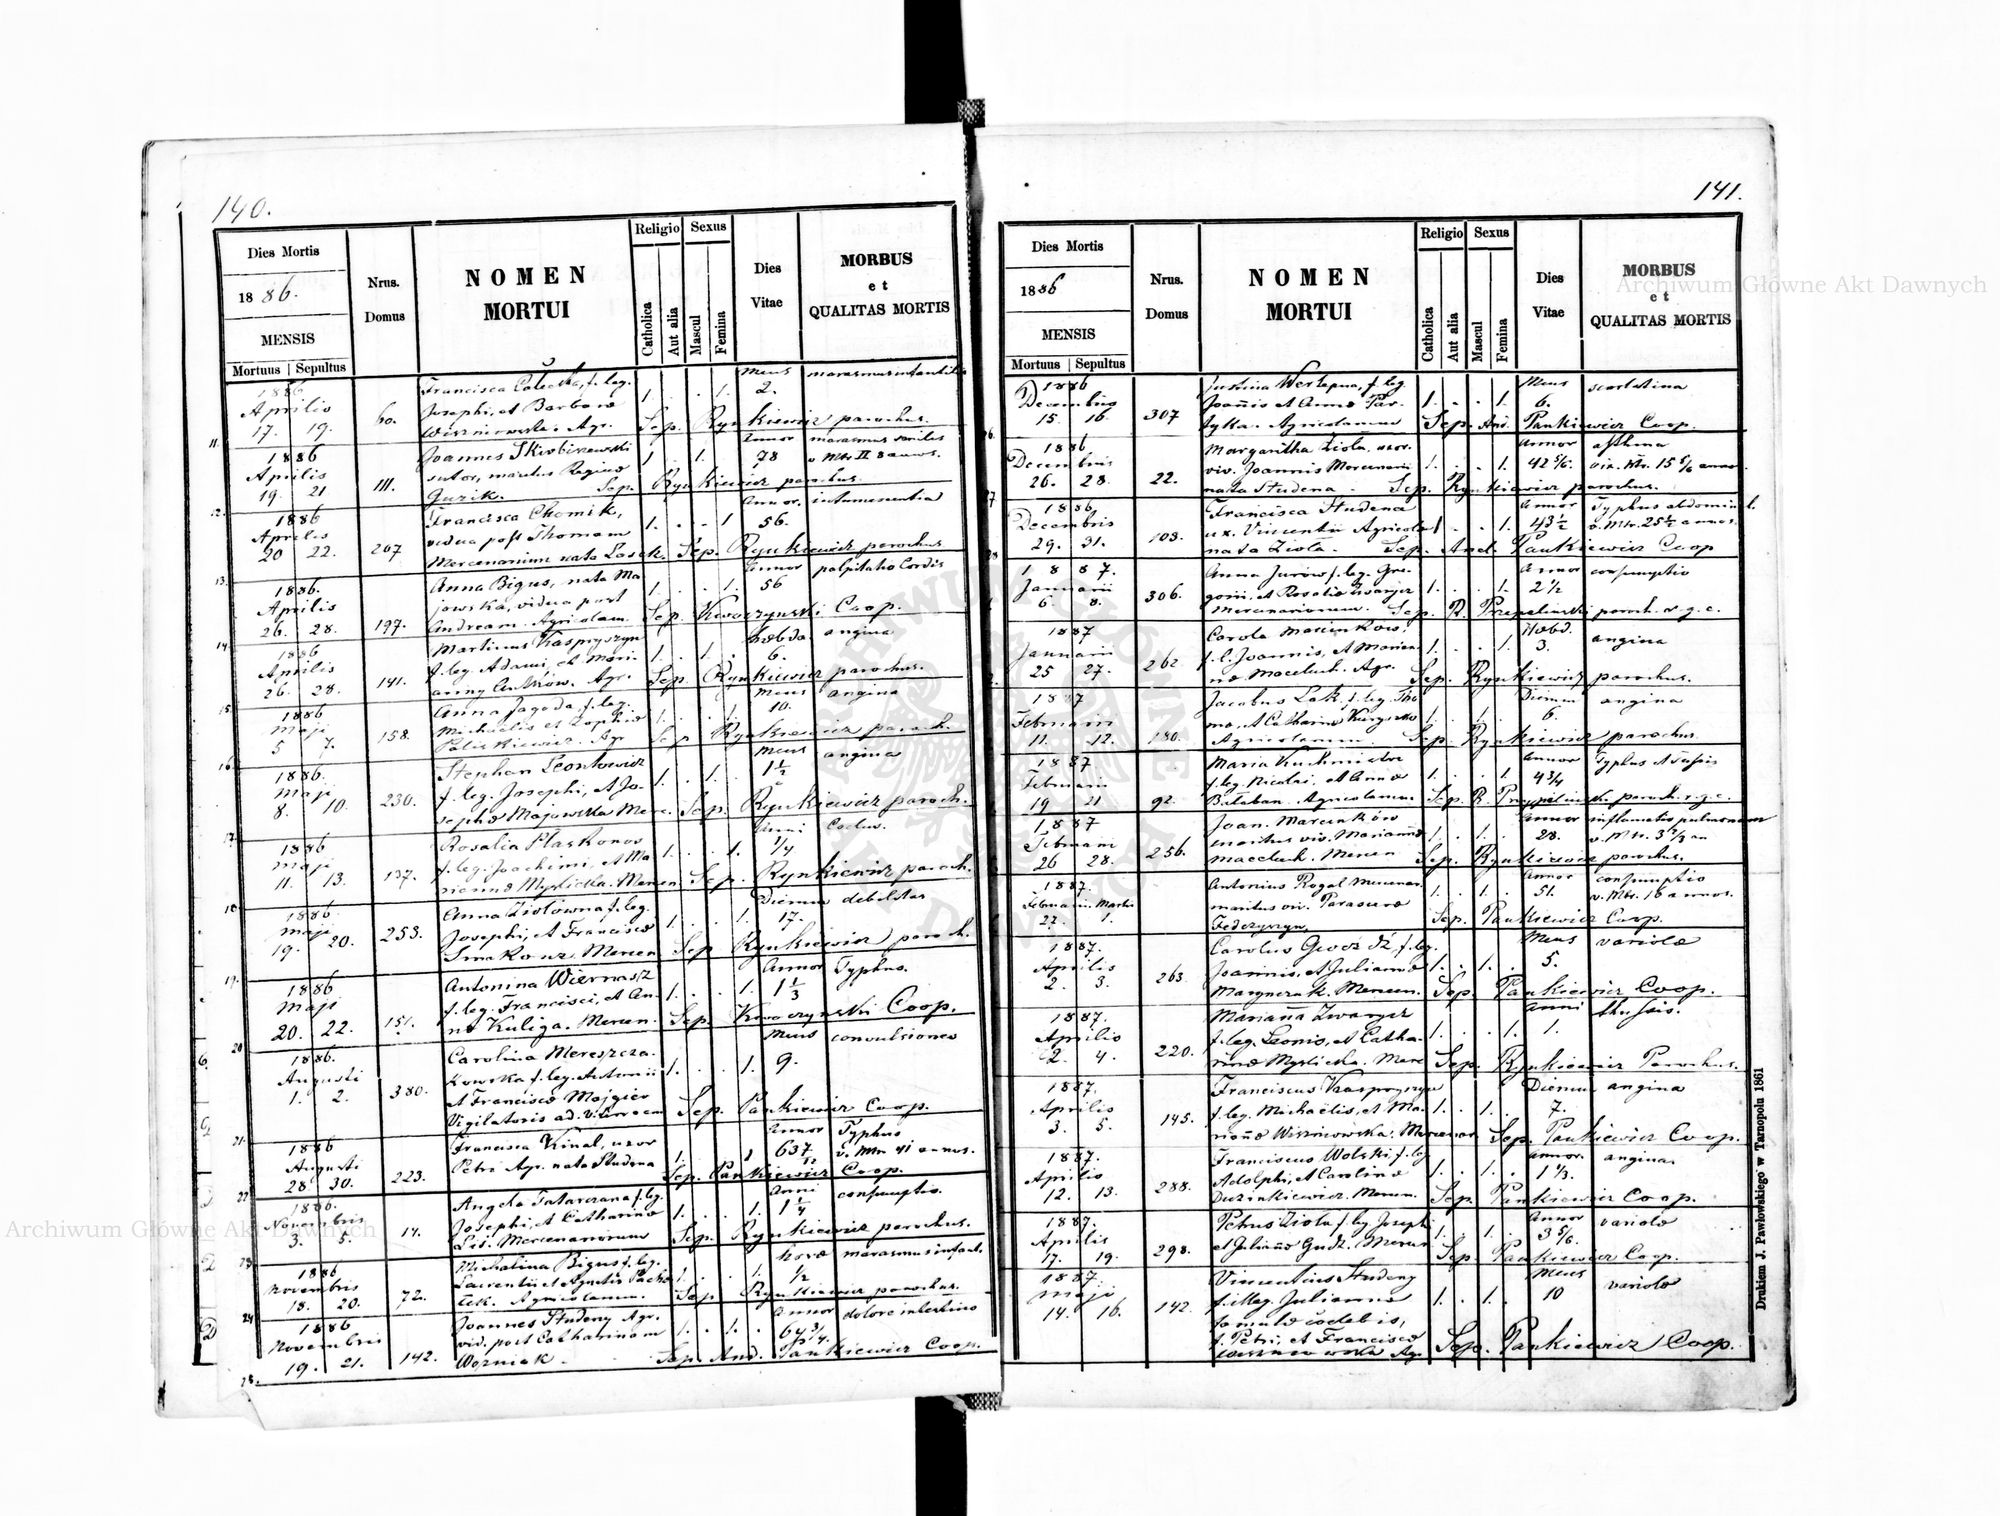 140.
Dies Mortis
1886.
MENSIS
Mortuus | Sepultus
Nrus.
Domus
NOMEN
MORTUI
Religio
Catholica
Aut alia
Sexus
Mascul
Femina
Dies
Vitae
MORBUS
et
QUALITAS MORTIS
1886
Aprilis
17. 19.
60.
Francisca, f. leg.
Josephi, et Barbara
Wiszniowska. Agr.
1. . . 1.
Mens
2.
marasmus infantilis
Sep. Rynkiewicz parochus.
11.
1886
Aprilis
19. 21
111.
Joannes Skrobiszewski
sutor, maritus Regina
Guzik.
1 . 1.
Annor
78
marasmus senilis
Sep. Rynkiewicz parochus.
12.
1886
Aprilis
20 22.
207
Francisca Chomik,
vidua post Thomam
Mercenarium nata Lasek.
1. . . 1
Annor.
56.
intumescentia
Sep. Rynkiewicz parochus
13.
1886.
Aprilis
26. 28.
197.
Anna Bigus, nata Ma
jowska, vidua post
Andream. Agricolam.
1. . . 1.
Annor
56
palpitatio Cordis
Sep. Coop.
14
1886
Aprilis
26. 28.
141.
Martinus Kaspryszyn
f. leg. Adami, et Mari-
anny Antków. Agr.
1. . 1.
hebda
6.
angina
Sep. Rynkiewicz parochus.
15.
1886
Maji
5 7.
158.
Anna Jagoda, f. leg.
Michaelis et Zophia
Agr
1. . . 1.
Mens
10.
angina
Sep Rynkiewicz paroch.
16.
1886.
Maji
8. 10.
230.
Stephan Leontowicz
f. leg. Josephi, et Jo-
sepha Majowska Merc.
1. . 1. .
Mens
1 1/2
angina
Sep. Rynkiewicz paroch.
17.
1886
Maji
11. 13.
137.
Rosalia Plaskonos
f. leg. Joachimi, et Ma
rianna Myslicka. Mercen
1. . . 1.
Anni
1/4
Sep. Rynkiewicz paroch.
18
1886
Maji
19. 20.
253.
Anna Ziolówna f. leg.
Josephi, et Francisca
Mercen
1. . . 1.
Dierum
17.
debilitas
Sep Rynkiewicz paroch.
19.
1886
Maji
20. 22.
151.
Antonina Wiernasz
f. leg. Francisci, et An-
na Kuliga. Mercen.
1. . . 1.
Annor
1 1/3
Typhus.
Sep. Coop.
20
1886.
Augusti
1. 2.
380.
Carolina Mereszcza-
kowska f. leg. Antonii
et Francisca
Vigilatoris ad
1. . . 1.
Mens
9.
convulsiones
Sep. Pankiewicz Coop.
21.
1886
Augusti
28. 30.
223.
Francisca Kinal, uxor
Petri Agr. nata Studena
1. . 1
Annor
63 7/12
Typhus
v. Mtr 41 annos.
Sep. Pankiewicz Coop.
22
1886.
Novembris
3. 5.
14.
Angela Tatarczana f. leg.
Josephi, et Catharina
Lis. Mercenariorum
1. . . 1.
Anni
1 1/4
consumptio.
Sep. Rynkiewicz parochus.
23.
1886
Novembris
18. 20.
72.
Michalina Bigus f. leg.
Laurentii et Agnetis Pach
Agricolarum.
1. . . 1.
hora
1/2
marasmus infant.
Sep Rynkiewicz parochus.
24.
1886
Novembris
19. 21.
142.
Joannes Studeny Agr.
vid. post Catharinam
Wozniak.
1. . 1. .
Annor
64 3/4.
dolore intestino
Sep. And. Pankiewicz Coop.
141.
Dies Mortis
1886
MENSIS
Mortuus | Sepultus
Nrus.
Domus
NOMEN
MORTUI
Religio
Catholica
Aut alia
Sexus
Mascul
Femina
Dies
Vitae
MORBUS
et
QUALITAS MORTIS
1886
Decembris
15. 16.
307
Justina f. leg
Joannis et Anna
Agricolarum
1. . . 1.
Mens
6.
scarlatina
Sep. And. Pankiewicz Coop.
1886.
Decembris
26. 28.
22.
Margaritha Ziola, uxor.
viv. Joannis Mercenarii
nata Studena
1. . . 1.
Annor
42 5/6.
asthma
Sep. Rynkiewicz parochus.
1886
Decembris
29. 31.
103.
Francisca Studena
ux. Vincentii Agricola
nata Ziola.
1 . . 1.
Annor
43 1/2
Typhus abdominal.
v. Mtr. 25 1/2 annos.
Sep. And. Pankiewicz Coop
1887.
Januarii
6. 8.
306.
Anna Jurów f. leg. Gre-
gorii, et Rosalia Zwarycz
Mercenariorum.
1. . . 1.
Annor
2 1/2
consumptio
Sep. R. paroch. r. g. c.
1887
Januarii
25 27.
262
Carola Marcinków.
f. l. Joannis, et Marian-
na Maceluch. Agr.
1. . . 1.
Hebd.
3.
angina
Sep. Rynkiewicz parochus.
1887
Februarii
11. 12.
180.
Jacobus Lak, f. leg. Tho
ma, et Catharina
Agricolarum.
1. . 1.
Dierum
6.
angina
Sep. Rynkiewicz parochus.
1887
Februarii
19 21
92.
Maria
f. leg. Nicolai, et Anna
Bałaban. Agricolarum
1. . . 1.
Annor
4 3/4
Typhus et tussis
Sep. R. paroch. r. g. c.
1887
Februarii
26 28.
256.
Joan. Marcinków
maritus viv. Marianna
Maceluch. Mercen
1. . 1.
Annor
28.
inflamatio pulmonum
Sep. Rynkiewicz parochus.
1887.
Februarii Martii
27. 1.
Antonius Rogal Mercenar.
maritus viv. Parasceva
Fedczyszyn
1. . 1.
Annor
51.
consumptio
v. Mtr. 16 annos.
Sep. Pankiewicz Coop.
1887.
Aprilis
2. 3.
263.
Carolus Gwóźdź, f. leg.
Joannis, et Julianna
Mercen.
1. . 1. .
Mens
5.
variola
Sep. Pankiewicz Coop.
1887.
Aprilis
2. 4.
220.
Marianna Zwarycz
f. leg. Leonis, et Catha-
rina Myslicka. Merc
1. . . 1.
Anni
1.
thussis.
Sep. Rynkiewicz Parochus.
1887.
Aprilis
3. 5.
145.
Franciscus Kaspryszyn
f. leg. Michaëlis, et Ma-
rianna Wiszniowska. Mercenar
1. . 1. .
Dierum
7.
angina
Sep. Pankiewicz Coop.
1887.
Aprilis
12. 13.
288.
Franciscus Wolski f. leg
Adolphi, et Carolina
Duzinkiewicz. Mercen.
1. . 1. .
Annor.
1 1/3.
angina.
Sep. Pankiewicz Coop.
1887.
Aprilis
17. 19.
298.
Petrus Ziola f. leg Josephi
et Julianna Gudz. Mercen
1. . 1. .
Annor
3 5/6.
variola
Sep. Pankiewicz Coop.
1887.
Maji
14. 16.
142.
Vincentius Studeny
f. illeg. Julianna
famula coelebis,
f. Petri, et Francisca
Agr.
1. . 1. .
Mens
10
variola
Sep. Pankiewicz Coop.
Drukiem J. Pawłowskiego w Tarnopolu 1861
Archiwum Główne Akt Dawnych
Archiwum Główne Akt Dawnych
ARCHIWUM GŁÓWNE AKT DAWNYCH